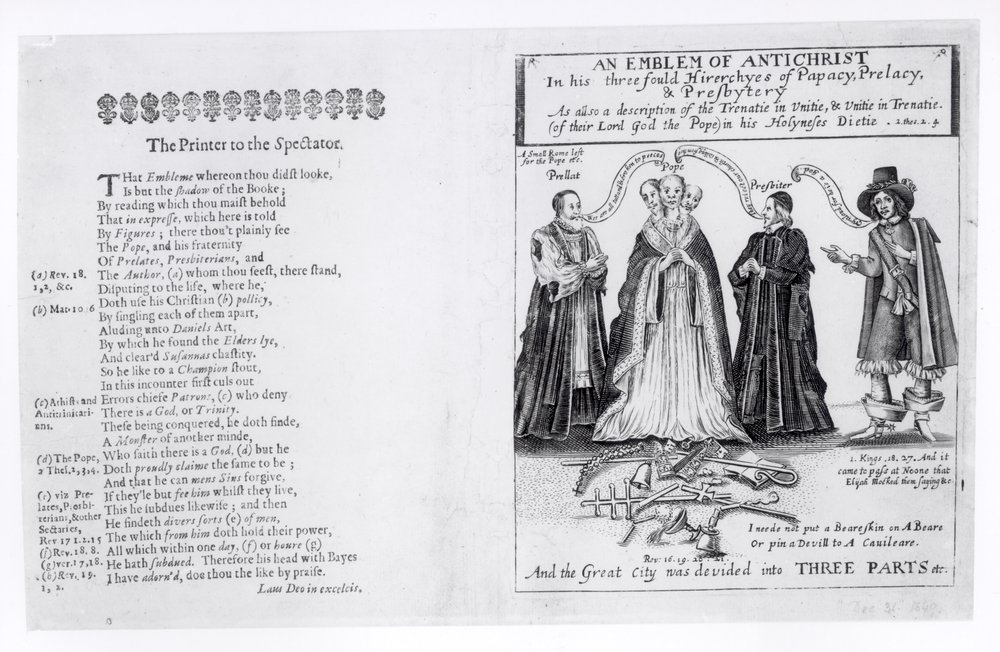 The Printer to the Spectator.
THat Embleme whereon thou didst looke,
Is but the shadow of the Booke;
By reading which thou maist behold
That in expresse, which here is told
By Figures; there thou't plainly see
The Pope, and his fraternity
Of Prelates, Presbiterians, and
The Author, (a) whom thou seest, there stand,
Disputing to the life, where he,
Doth use his Christian (b) pollicy,
By singling each of them apart,
Aluding unto Daniels Art,
By which he found the Elders lye,
And clear'd Susannas chastity.
So he like to a Champion stout,
In this incounter first culs out
Errors chiefe Patrons, (c) who deny
There is a God, or Trinity.
These being conquered, he doth finde,
A Monster of another minde,
Who saith there is a God, (d) but he
Doth proudly claime the same to be;
And that he can mens Sins forgive,
If they'le but fee him whilst they live,
This he subdues likewise; and then
He findeth divers sorts (e) of men,
The which from him doth hold their power,
All which within one day, (f) or houre (g)
He hath subdued. Therefore his head with Bayes
I have adorn'd, doe thou the like by praise.
Laus Deo in excelcis,
(a) Rev. 18.
1, 2, &c.
(b) Mat. 10 6
(c) Athists and
Antitrinitari-
ans.
(d) The Pope,
2 Thes. 2, 3, 4.
(e) viz Pre-
lates, Presbi-
terians, & other
Sectaries,
Rev 17 1. 2. 15
(f) Rev. 18. 8.
(g) ver. 17, 18.
(h) Rev. 19.
1, 2.
AN EMBLEM OF ANTICHRIST
In his three fould Hirerchyes of Papacy, Prelacy,
& Presbytery
As allso a description of the Trenatie in Unitie, & Unitie in Trenatie.
(of their Lord God the Pope) in his Holyneses Dietie. 2. thes. 2. 4.
A Small Rome left
for the Pope etc.
Prellat
Pope
Presbiter
1. Kings. 18. 27. And it
came to pass at Noone that
Elijah Mocked them saying &c
I neede not put a Beare skin on A Beare
Or pin a Devill to A Cavileare.
Rev: 16. 19.
And the Great City was devided into THREE PARTS etc.